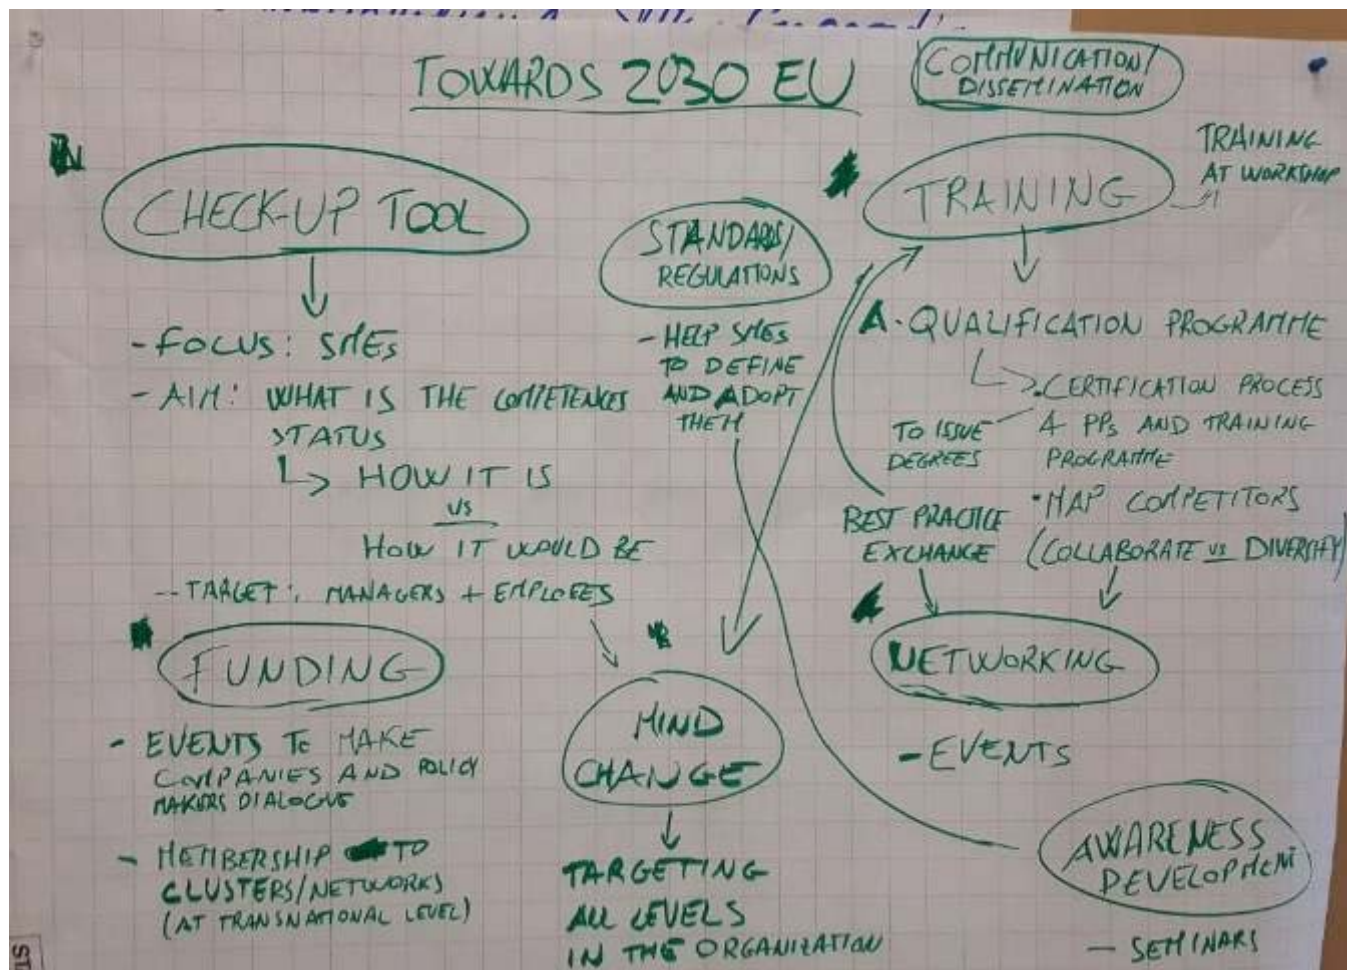 TOWARDS 2030 EU
COMMUNICATION/
DISSEMINATION
CHECK-UP TOOL
- FOCUS: SMEs
- AIM: WHAT IS THE COMPETENCES
STATUS
HOW IT IS
VS
HOW IT WOULD BE
-- TARGET: MANAGERS + EMPLOEES
STANDARDS/
REGULATIONS
- HELP SMEs
TO DEFINE
AND ADOPT
THEM
TRAINING
TRAINING
AT WORKSHOP
A. QUALIFICATION PROGRAMME
• CERTIFICATION PROCESS
4 PPs AND TRAINING
PROGRAMME
TO ISSUE
DEGREES
• MAP COMPETITORS
(COLLABORATE VS DIVERSIFY)
BEST PRACTICE
EXCHANGE
FUNDING
- EVENTS TO MAKE
COMPANIES AND POLICY
MAKERS DIALOGUE
- MEMBERSHIP TO
CLUSTERS/NETWORKS
(AT TRANSNATIONAL LEVEL)
MIND
CHANGE
TARGETING
ALL LEVELS
IN THE ORGANIZATION
NETWORKING
- EVENTS
AWARENESS
DEVELOPMENT
- SEMINARS